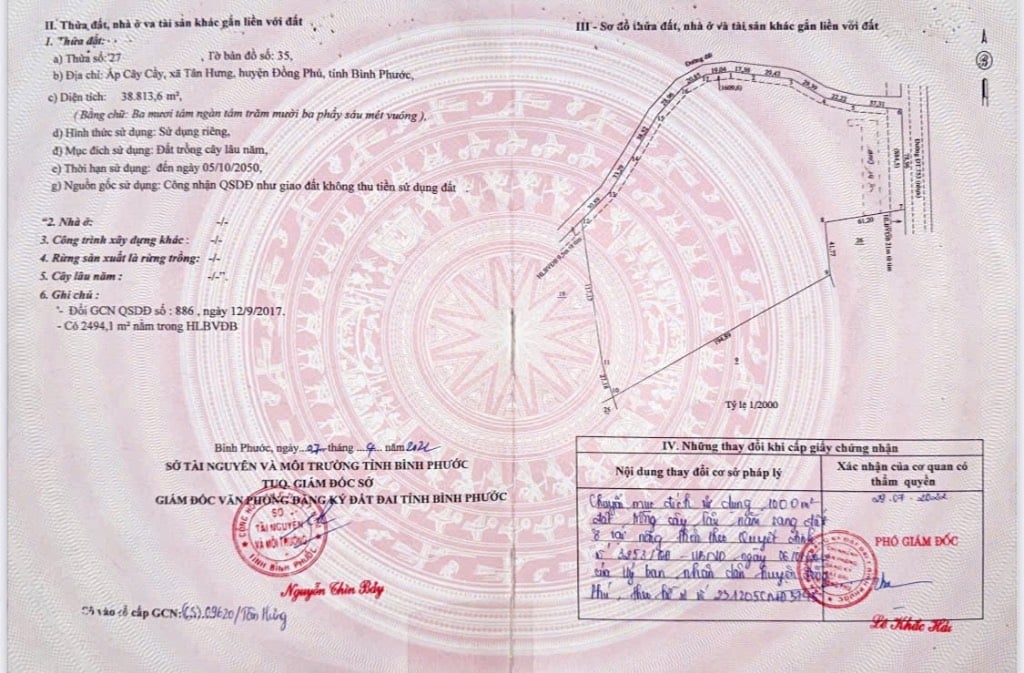 II. Thửa đất, nhà ở và tài sản khác gắn liền với đất
1. Thửa đất:
a) Thửa số: 27 , Tờ bản đồ số: 35,
b) Địa chỉ: Ấp Cây Cầy, xã Tân Hưng, huyện Đồng Phú, tỉnh Bình Phước,
c) Diện tích: 38.813,6 m²,
( Bằng chữ: Ba mươi tám ngàn tám trăm mười ba phẩy sáu mét vuông ),
d) Hình thức sử dụng: Sử dụng riêng,
đ) Mục đích sử dụng: Đất trồng cây lâu năm,
e) Thời hạn sử dụng: đến ngày 05/10/2050,
g) Nguồn gốc sử dụng: Công nhận QSDĐ như giao đất không thu tiền sử dụng đất
"2. Nhà ở: -/-
3. Công trình xây dựng khác : -/-
4. Rừng sản xuất là rừng trồng: -/-
5. Cây lâu năm : -/-".
6. Ghi chú :
- Đổi GCN QSDĐ số : 886 , ngày 12/9/2017.
- Có 2494,1 m² nằm trong HLBVĐB
Bình Phước, ngày 07 tháng 4 năm 2022
SỞ TÀI NGUYÊN VÀ MÔI TRƯỜNG TỈNH BÌNH PHƯỚC
TUQ. GIÁM ĐỐC SỞ
GIÁM ĐỐC VĂN PHÒNG ĐĂNG KÝ ĐẤT ĐAI TỈNH BÌNH PHƯỚC
SỞ
TÀI NGUYÊN
VÀ MÔI TRƯỜNG
TỈNH BÌNH PHƯỚC
Nguyễn Thìn Bảy
Số vào sổ cấp GCN: (CS).09620/Tân Hưng
III - Sơ đồ thửa đất, nhà ở và tài sản khác gắn liền với đất
Đường đất
20.85 19.04 17.50 29.43 22.22 37.31
(1609,6)
Đường ĐT 753 (nhựa)
(884,5)
78.96
61,20
41,77
28
18
117.13
194,89
27,18
9
6
7
8
9
10
11
25
Tỷ lệ 1/2000
IV. Những thay đổi khi cấp giấy chứng nhận
Nội dung thay đổi cơ sở pháp lý
Xác nhận của cơ quan có
thẩm quyền
Chuyển mục đích sử dụng 1000m²
đất trồng cây lâu năm sang đất
ở tại nông thôn theo Quyết định
số /QĐ-UBND ngày 06/
của Ủy ban nhân dân huyện Đồng
Phú, theo hồ sơ số
29-07-2022
PHÓ GIÁM ĐỐC
Lê Khắc Hải